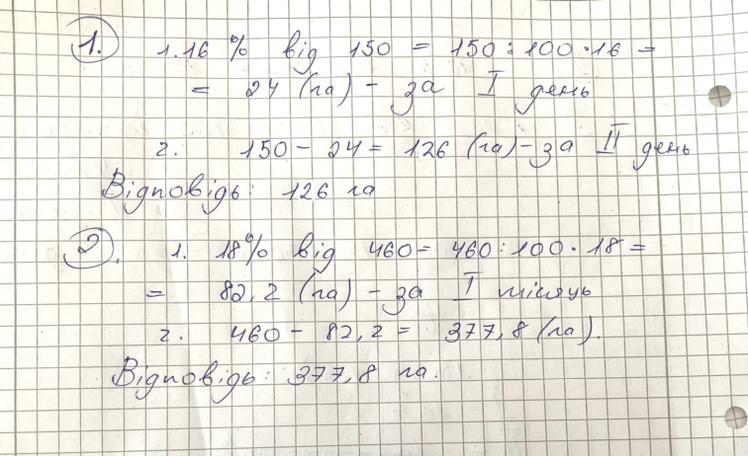 1. 1. 16 % від 150 = 150 : 100 · 16 =
= 24 (га) - за I день
2. 150 - 24 = 126 (га) - за II день
Відповідь: 126 га
2. 1. 18% від 460 = 460 : 100 · 18 =
= 82,2 (га) - за I місяць
2. 460 - 82,2 = 377,8 (га).
Відповідь: 377,8 га.